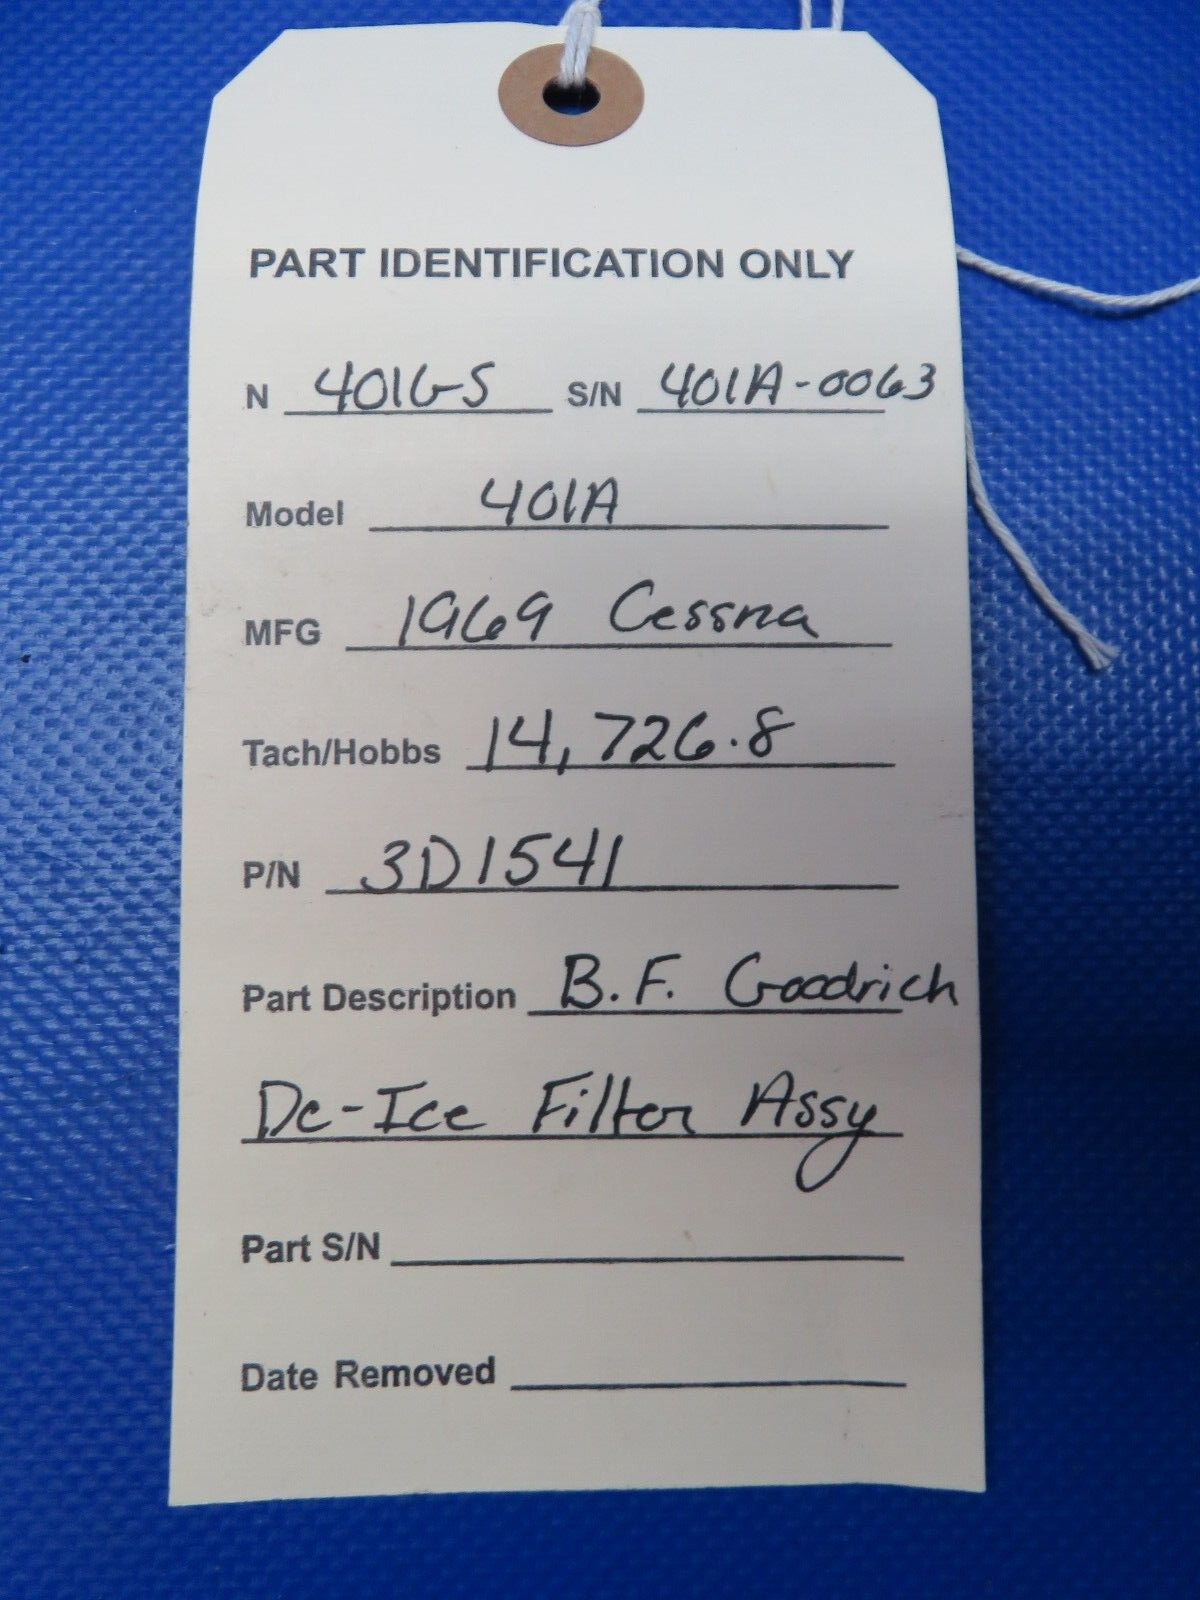 PART IDENTIFICATION ONLY
N 401GS S/N 401A-0063
Model 401A
MFG 1969 Cessna
Tach/Hobbs 14,726.8
P/N 3D1541
Part Description B.F. Goodrich
De-Ice Filter Assy
Part S/N
Date Removed